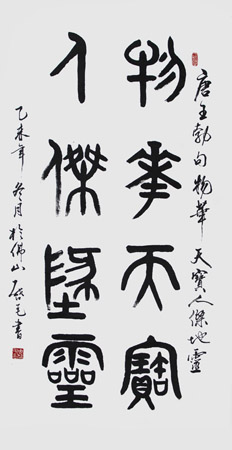 唐王勃句物華天寶人傑地靈
物華天寶
人傑墬靈
乙未年冬月於佛山書